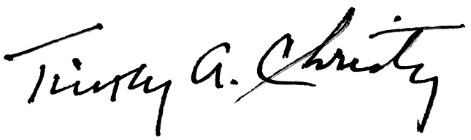 Timothy A. Christy